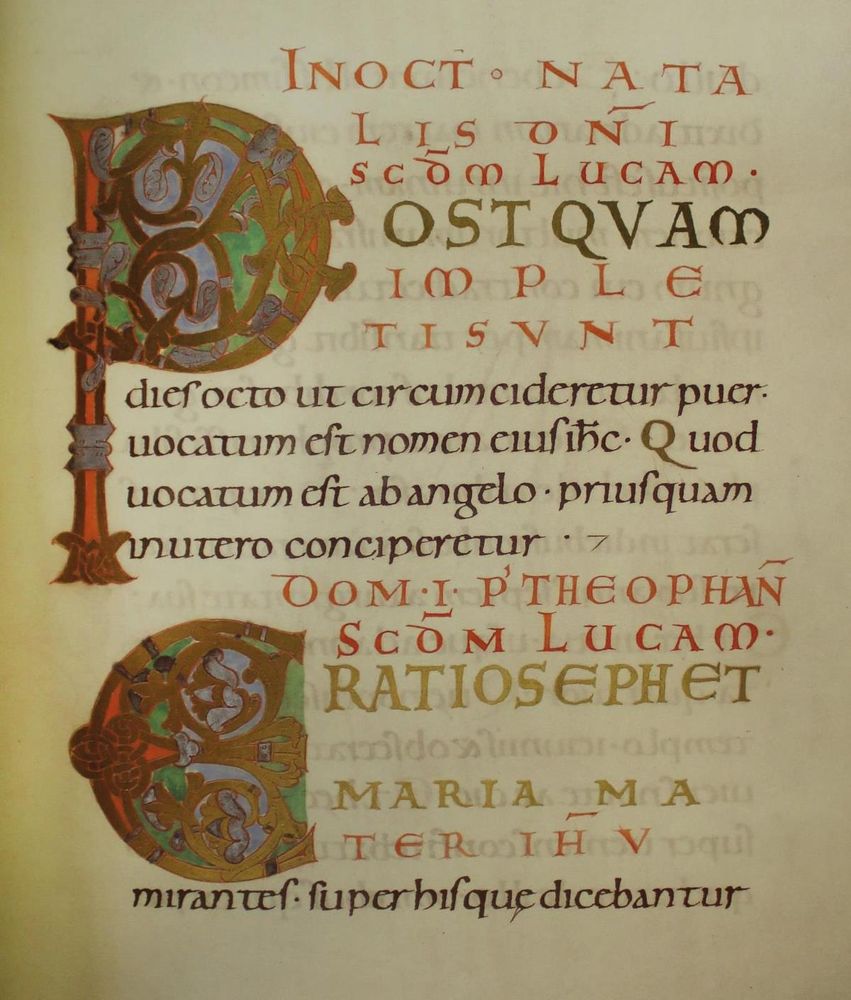 INOCT · NATA
LIS DÑI
SCD̄M LUCAM ·
POSTQVAM
IMPLE
TISVNT
dieſ octo ut circumcideretur puer·
uocatum eſt nomen eiuſ ih̄c· Quod
uocatum eſt ab angelo · priuſquam
inutero conciperetur ·
DOM · I · P' THEOPHAÑ
SCD̄M LUCAM ·
ERATIOSEPHET
MARIA MA
TER IH̄V
miranteſ· ſuper hiſque dicebantur